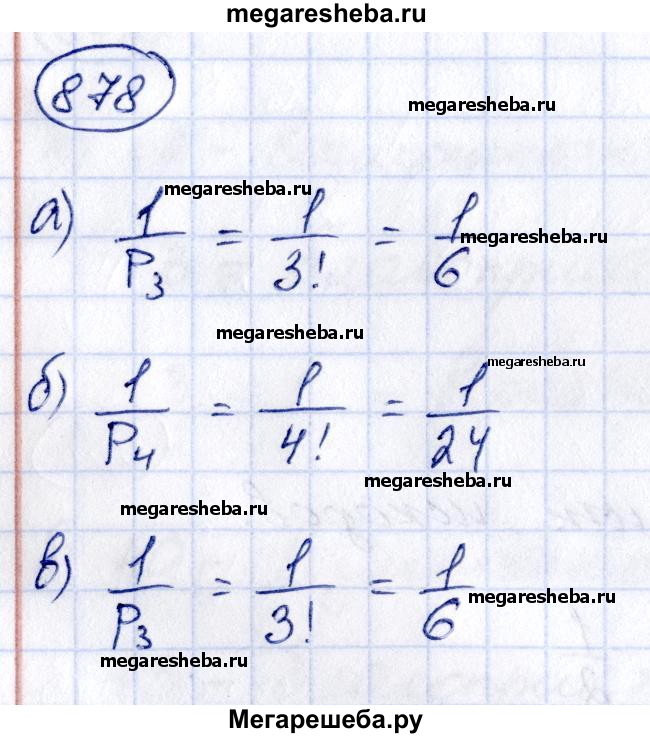 megaresheba.ru
878
megaresheba.ru
megaresheba.ru
а) 1/P₃ = 1/3! = 1/6
megaresheba.ru
megaresheba.ru
megaresheba.ru
б) 1/P₄ = 1/4! = 1/24
megaresheba.ru
megaresheba.ru
в) 1/P₃ = 1/3! = 1/6
megaresheba.ru
megaresheba.ru
Мегарешеба.ру